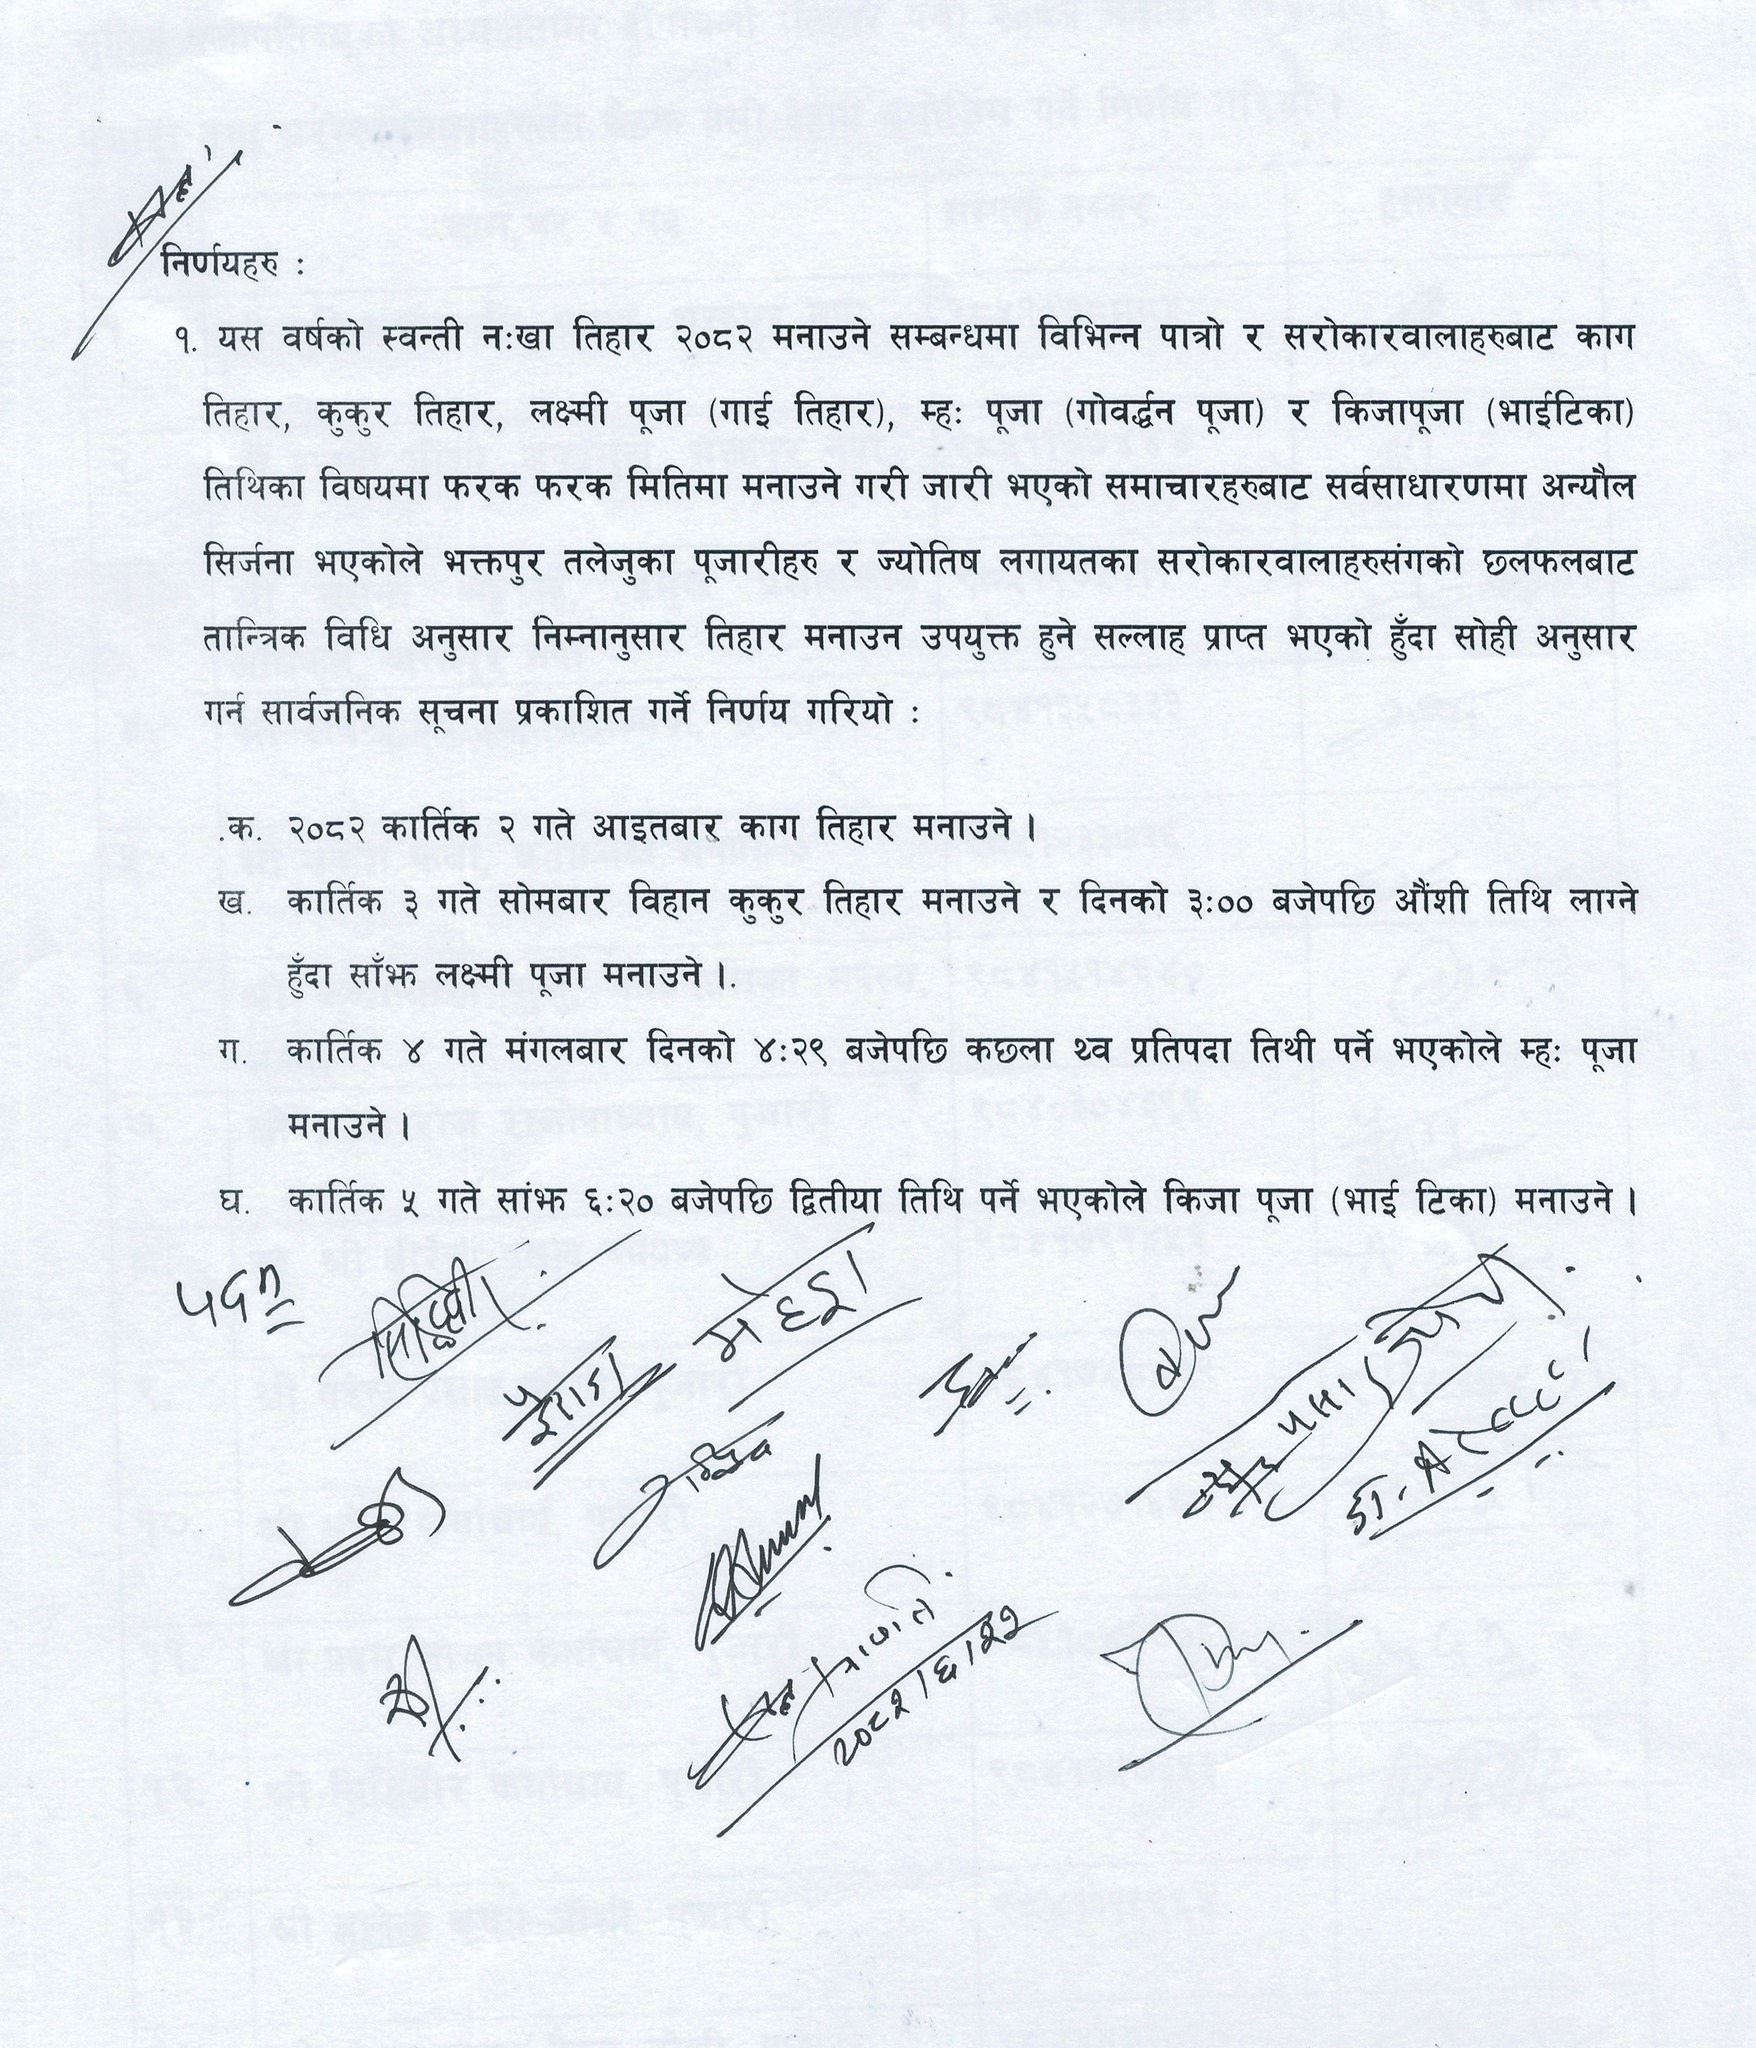 निर्णयहरु :
१. यस वर्षको स्वन्ती नःखा तिहार २०८२ मनाउने सम्बन्धमा विभिन्न पात्रो र सरोकारवालाहरुबाट काग
तिहार, कुकुर तिहार, लक्ष्मी पूजा (गाई तिहार), म्हः पूजा (गोवर्द्धन पूजा) र किजापूजा (भाईटिका)
तिथिका विषयमा फरक फरक मितिमा मनाउने गरी जारी भएको समाचारहरुबाट सर्वसाधारणमा अन्यौल
सिर्जना भएकोले भक्तपुर तलेजुका पूजारीहरु र ज्योतिष लगायतका सरोकारवालाहरुसंगको छलफलबाट
तान्त्रिक विधि अनुसार निम्नानुसार तिहार मनाउन उपयुक्त हुने सल्लाह प्राप्त भएको हुँदा सोही अनुसार
गर्न सार्वजनिक सूचना प्रकाशित गर्ने निर्णय गरियो :
क. २०८२ कार्तिक २ गते आइतबार काग तिहार मनाउने ।
ख. कार्तिक ३ गते सोमबार विहान कुकुर तिहार मनाउने र दिनको ३:०० बजेपछि औंशी तिथि लाग्ने
हुँदा साँझ लक्ष्मी पूजा मनाउने ।
ग. कार्तिक ४ गते मंगलबार दिनको ४:२९ बजेपछि कछला थ्व प्रतिपदा तिथी पर्ने भएकोले म्हः पूजा
मनाउने ।
घ. कार्तिक ५ गते सांझ ६:२० बजेपछि द्वितीया तिथि पर्ने भएकोले किजा पूजा (भाई टिका) मनाउने ।
२०८२।६।२२